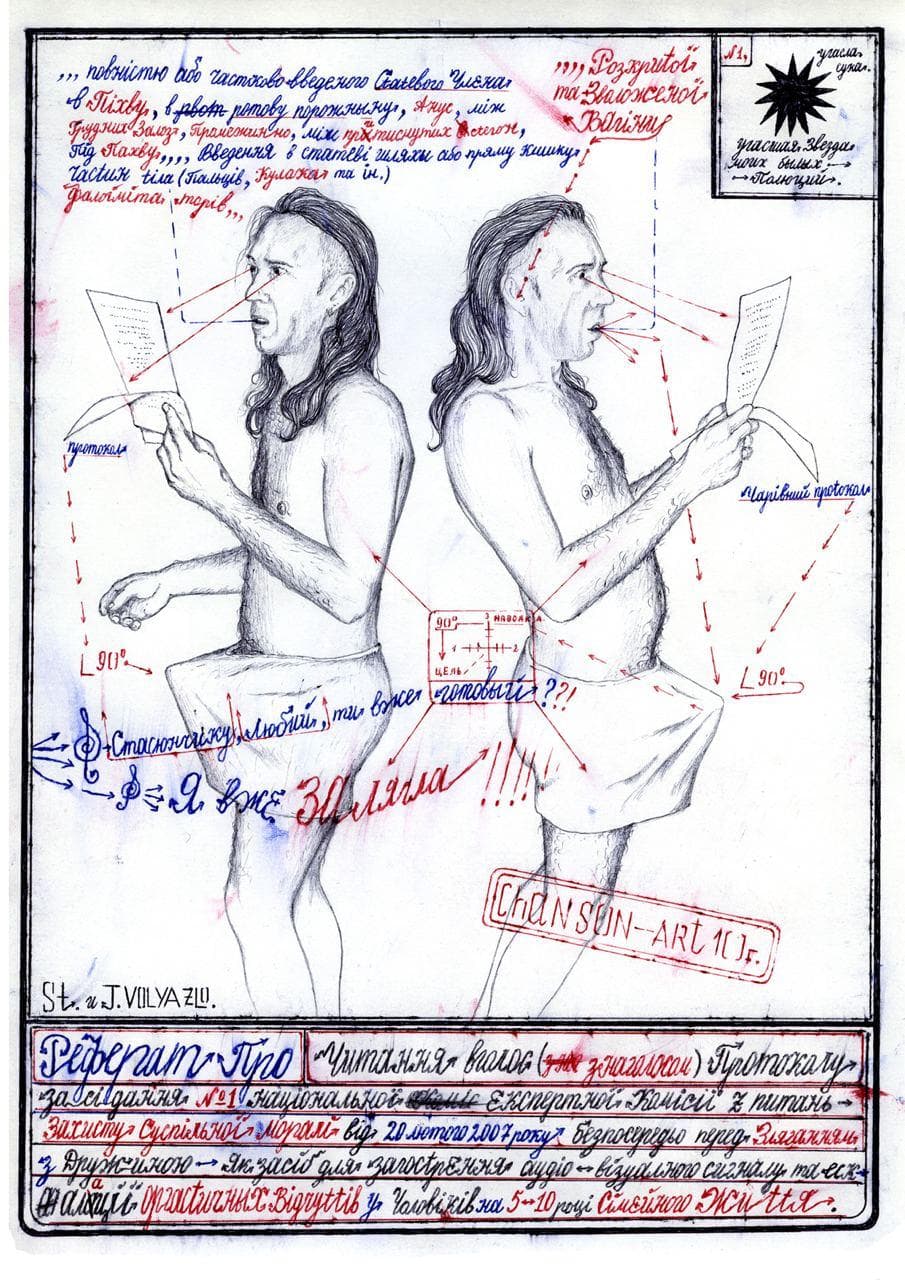 ,,, повністю або частково введеного Статевого Члена
в Піхву, в рот ротову порожнину, Анус, між
Грудних Залоз, Промежинно, між притиснутих Стегон,
Під Пахву,,,, Введення в статеві шляхи або пряму кишку
частин тіла (Пальців, Кулака та ін.)
фалоіміта - торів,,,
,,,, Розкритої
та Зволоженої
Вагіни
№1,
угасла
угасшая Звезда
моих былых →
→ Полюций.
протокол
Чарівний протокол
90°
90°
90°
3 НАВОДКА
1 2
ЦЕЛЬ
Стасюнчику, Любий, ти вже готовый ??!
Я вже ЗАлягла !!!!!!
ChANSON-ART 10г.
St. и J. VOLYAZLO.
Реферат Про Читання вголос (з наголосом) Протоколу
засідання №1 національної Експертної Комісії з питань
Захисту Суспільної Моралі від 20 лютого 2007 року безпосередьо перед Зляганням
з Дружиною → Як засіб для загострЕння аудіо-візуального сигналу та еск-
алації Оргастичных Відчуттів у Чоловіків на 5-10 році Сімейного Життя.